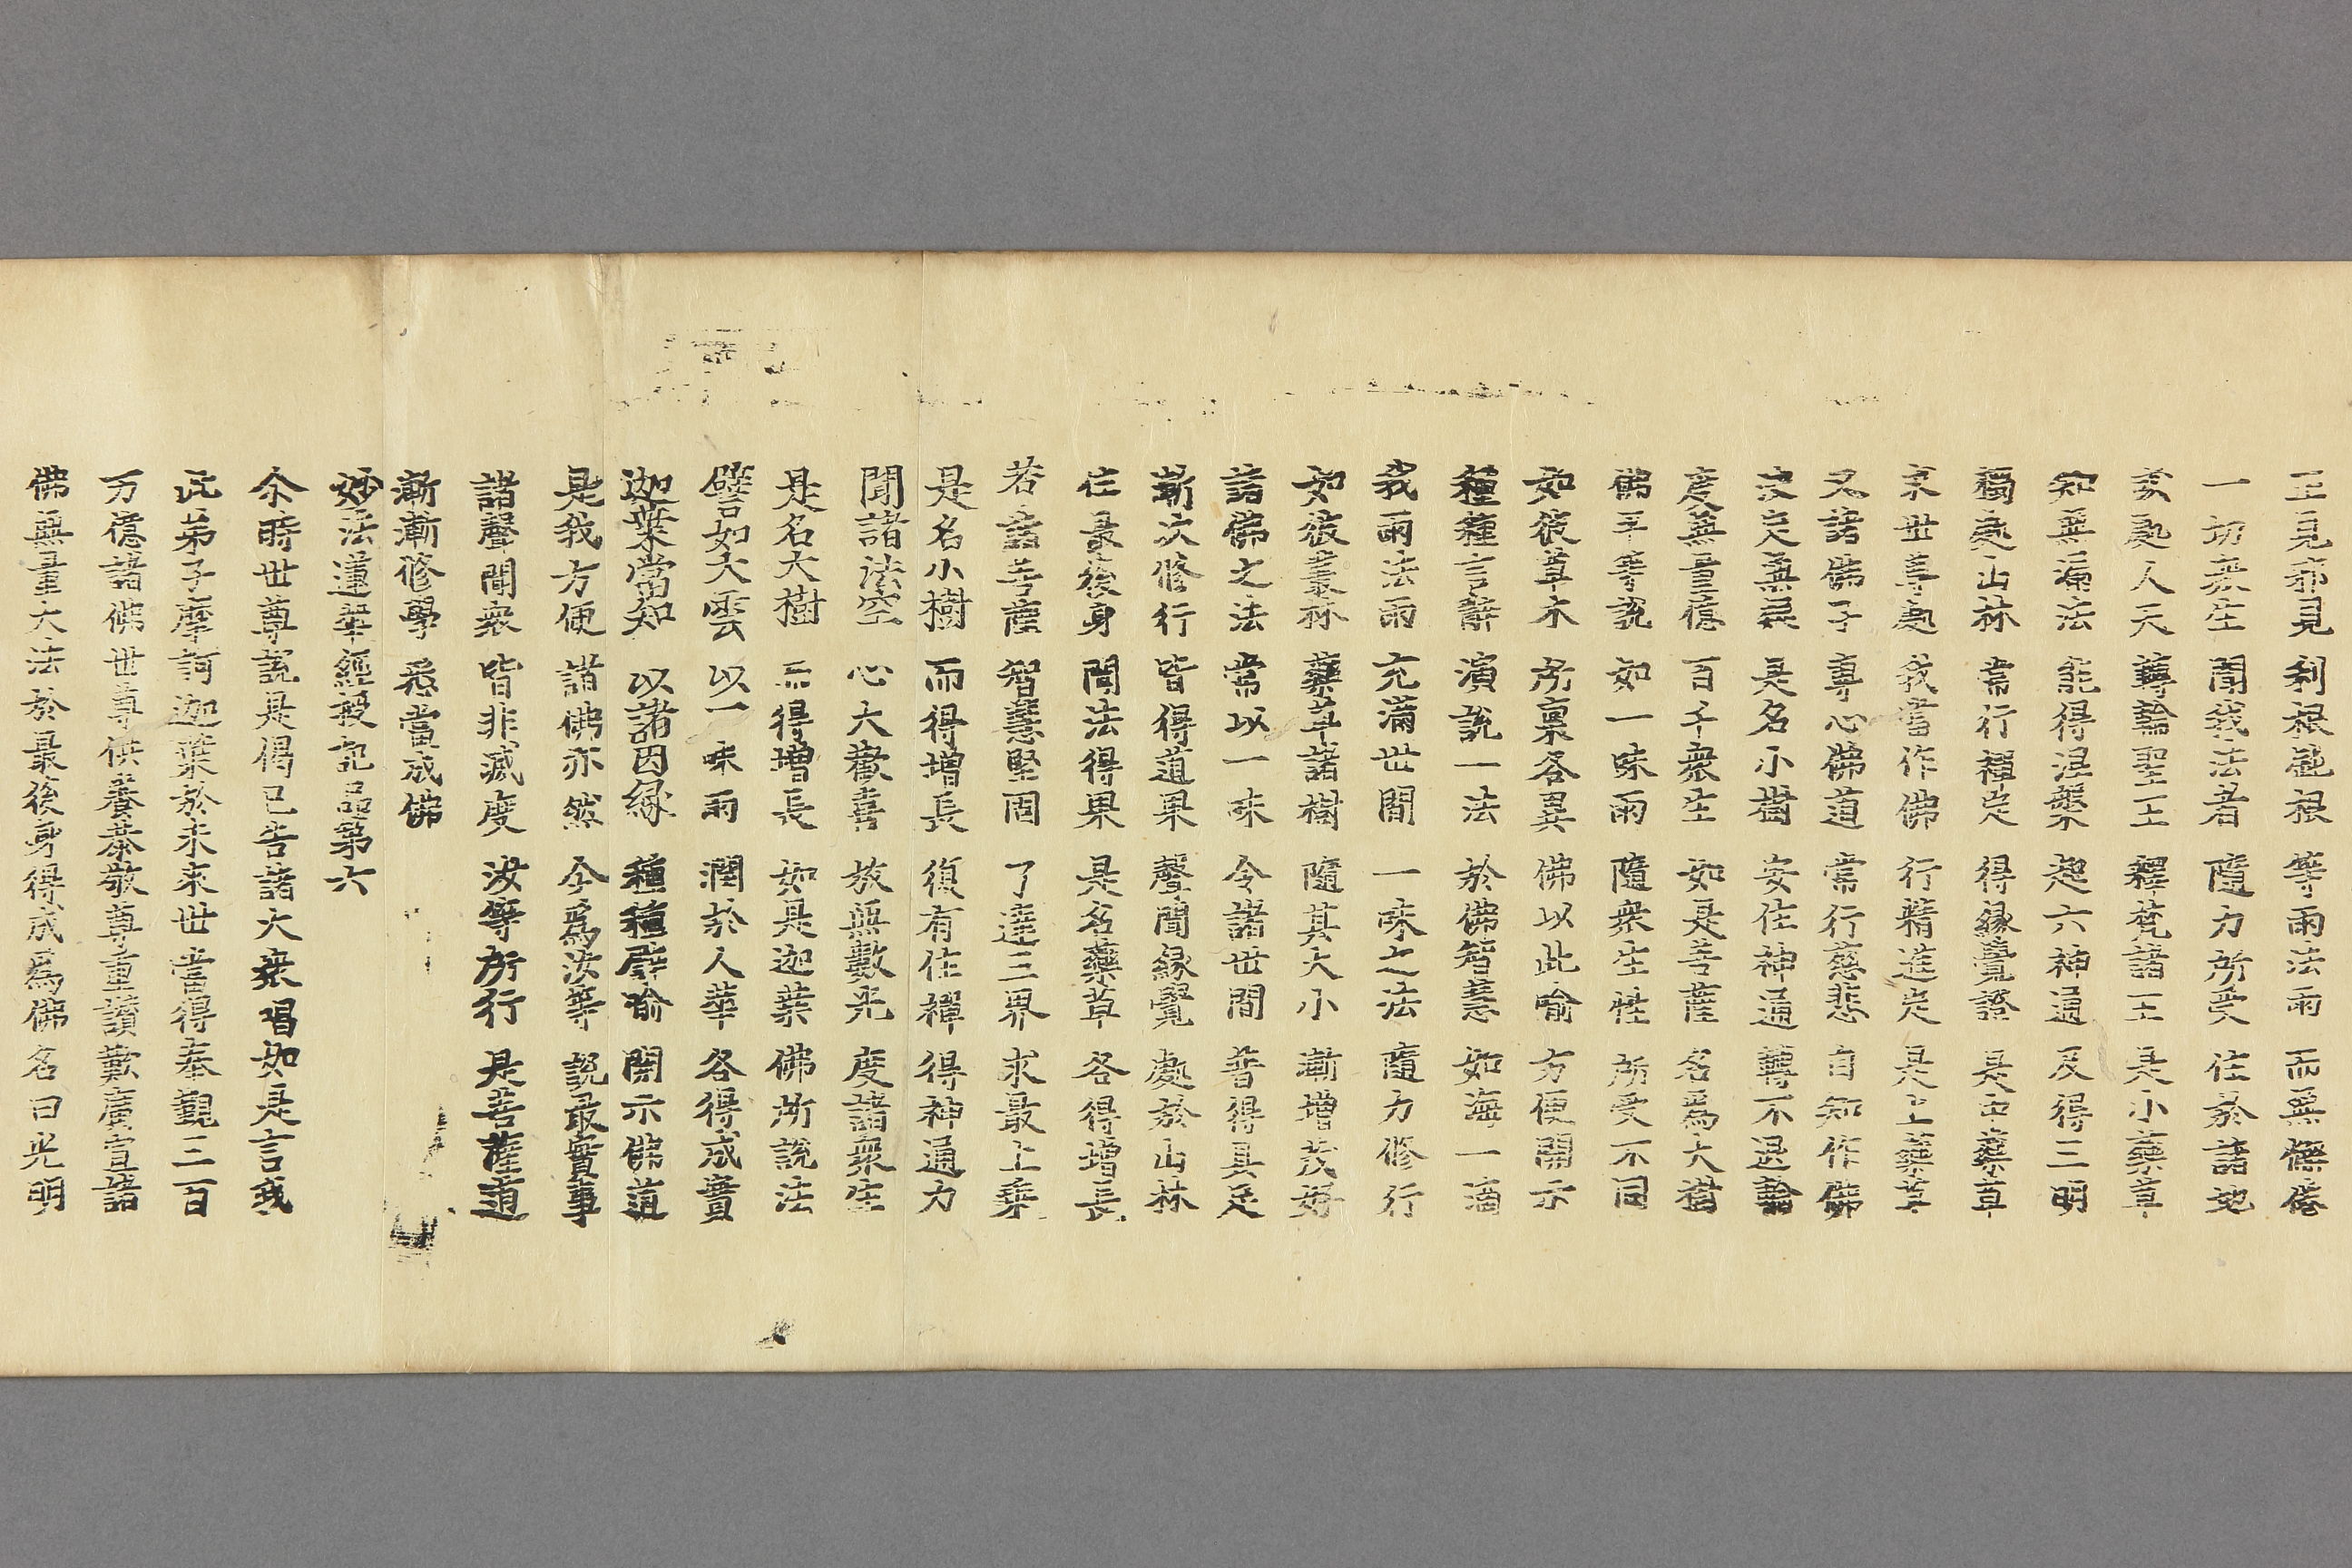 正見邪見 利根鈍根 等雨法雨 而無懈倦
一切衆生 聞我法者 隨力所受 住於諸地
或處人天 轉輪聖王 釋梵諸王 是小藥草
知無漏法 能得涅槃 起六神通 及得三明
獨處山林 常行禪定 得緣覺證 是中藥草
求世尊處 我當作佛 行精進定 是上藥草
又諸佛子 專心佛道 常行慈悲 自知作佛
決定無疑 是名小樹 安住神通 轉不退輪
度無量億 百千衆生 如是菩薩 名爲大樹
佛平等說 如一味雨 隨衆生性 所受不同
如彼草木 所稟各異 佛以此喻 方便開示
種種言辭 演說一法 於佛智慧 如海一滴
我雨法雨 充滿世間 一味之法 隨力修行
如彼叢林 藥草諸樹 隨其大小 漸增茂好
諸佛之法 常以一味 令諸世間 普得具足
漸次修行 皆得道果 聲聞緣覺 處於山林
住最後身 聞法得果 是名藥草 各得增長
若諸菩薩 智慧堅固 了達三界 求最上乘
是名小樹 而得增長 復有住禪 得神通力
聞諸法空 心大歡喜 放無數光 度諸衆生
是名大樹 而得增長 如是迦葉 佛所說法
譬如大雲 以一味雨 潤於人華 各得成實
迦葉當知 以諸因緣 種種譬喻 開示佛道
是我方便 諸佛亦然 今爲汝等 說最實事
諸聲聞衆 皆非滅度 汝等所行 是菩薩道
漸漸修學 悉當成佛
妙法蓮華經授記品第六
尒時世尊說是偈已告諸大衆唱如是言我
此弟子摩訶迦葉於未來世當得奉覲三百
万億諸佛世尊供養恭敬尊重讚歎廣宣諸
佛無量大法於最後身得成爲佛名曰光明